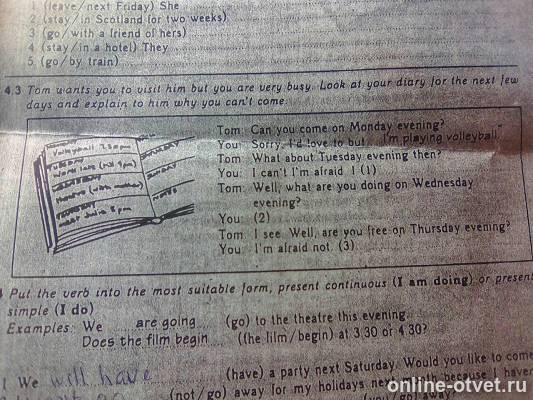 1 (leave/next Friday) She
2 (stay/in Scotland for two weeks)
3 (go/with a friend of hers)
4 (stay/in a hotel) They
5. (go/by train)
4.3 Tom wants you to visit him but you are very busy. Look at your diary for the next few
days and explain to him why you can't come:
Volleyball 7.30 pm
Tuesday
Work late (till 9pm)
Theatre (with mother)
meet Julia 8 pm
Tom: Can you come on Monday evening?
You: Sorry, I'd love to but I'm playing volleyball
Tom: What about Tuesday evening then?
You: I can't I'm afraid. I (1)
Tom: Well, what are you doing on Wednesday
evening?
You: (2)
Tom: I see. Well, are you free on Thursday evening?
You: I'm afraid not. (3)
Put the verb into the most suitable form, present continuous (I am doing) or present
simple (I do)
Examples: We are going (go) to the theatre this evening.
Does the film begin (the film/begin) at 3.30 or 4.30?
1 We will have (have) a party next Saturday. Would you like to come
(not/go) away for my holidays next because I haven
(you/go) away?
online-otvet.ru